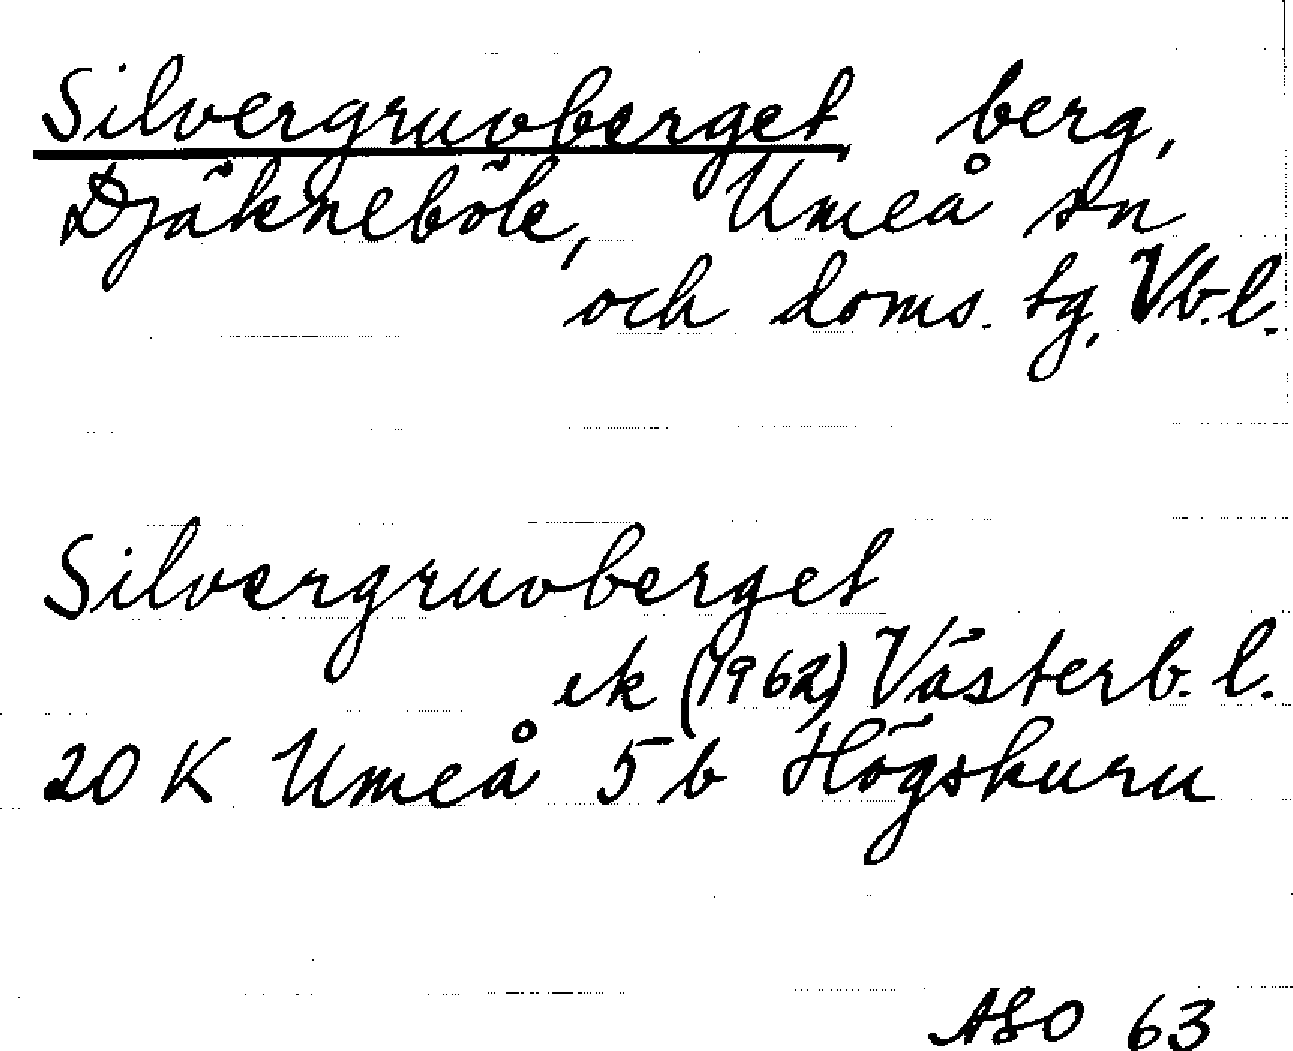 Silvergruvberget berg,
Djäkneböle, Umeå sn
och doms. tg, Vb.l.
Silvergruvberget
ek (1962) Västerb. l.
20 K Umeå 5 b Högskuru
ASO 63